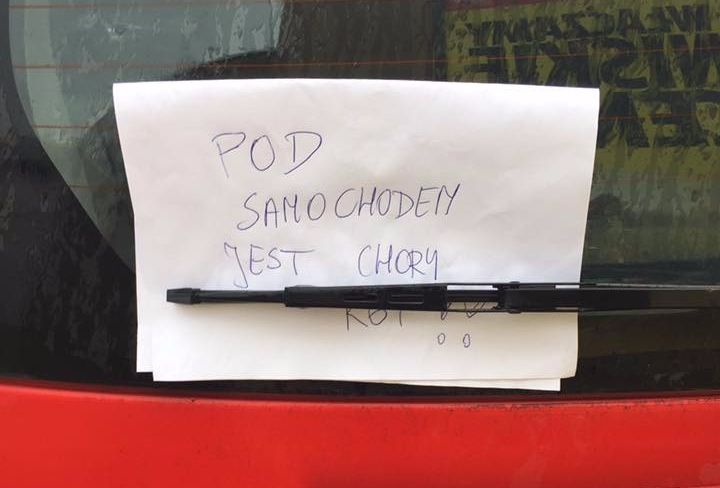 POD
SAMOCHODEM
JEST CHORY
KOT !!